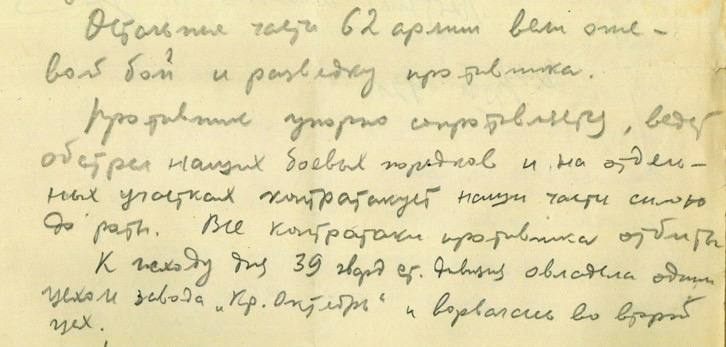 Остальные части 62 армии вели огне-
вой бой и разведку противника.
Противник упорно сопротивляется, ведет
обстрел наших боевых порядков и на отдель-
ных участках контратакует наши части силою
до роты. Все контратаки противника отбиты
К исходу дня 39 гвард. ст. дивизия овладела одним
цехом завода „Кр. Октябрь“ и ворвалась во второй
цех.